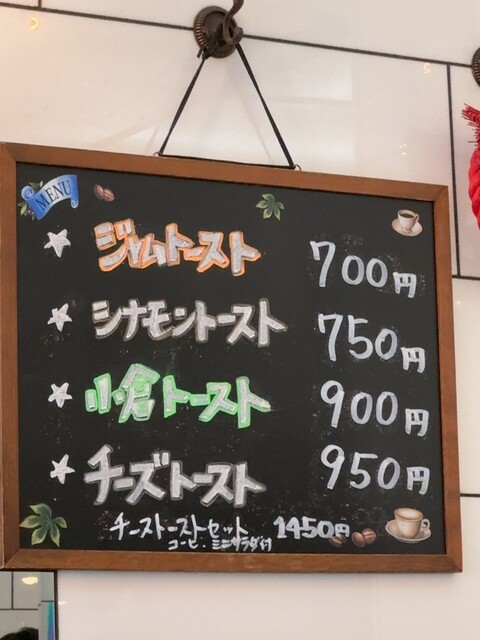 MENU
☆ ジャムトースト 700円
☆ シナモントースト 750円
☆ 小倉トースト 900円
☆ チーズトースト 950円
チーストーストセット 1450円
コーヒ・ミニサラダ付